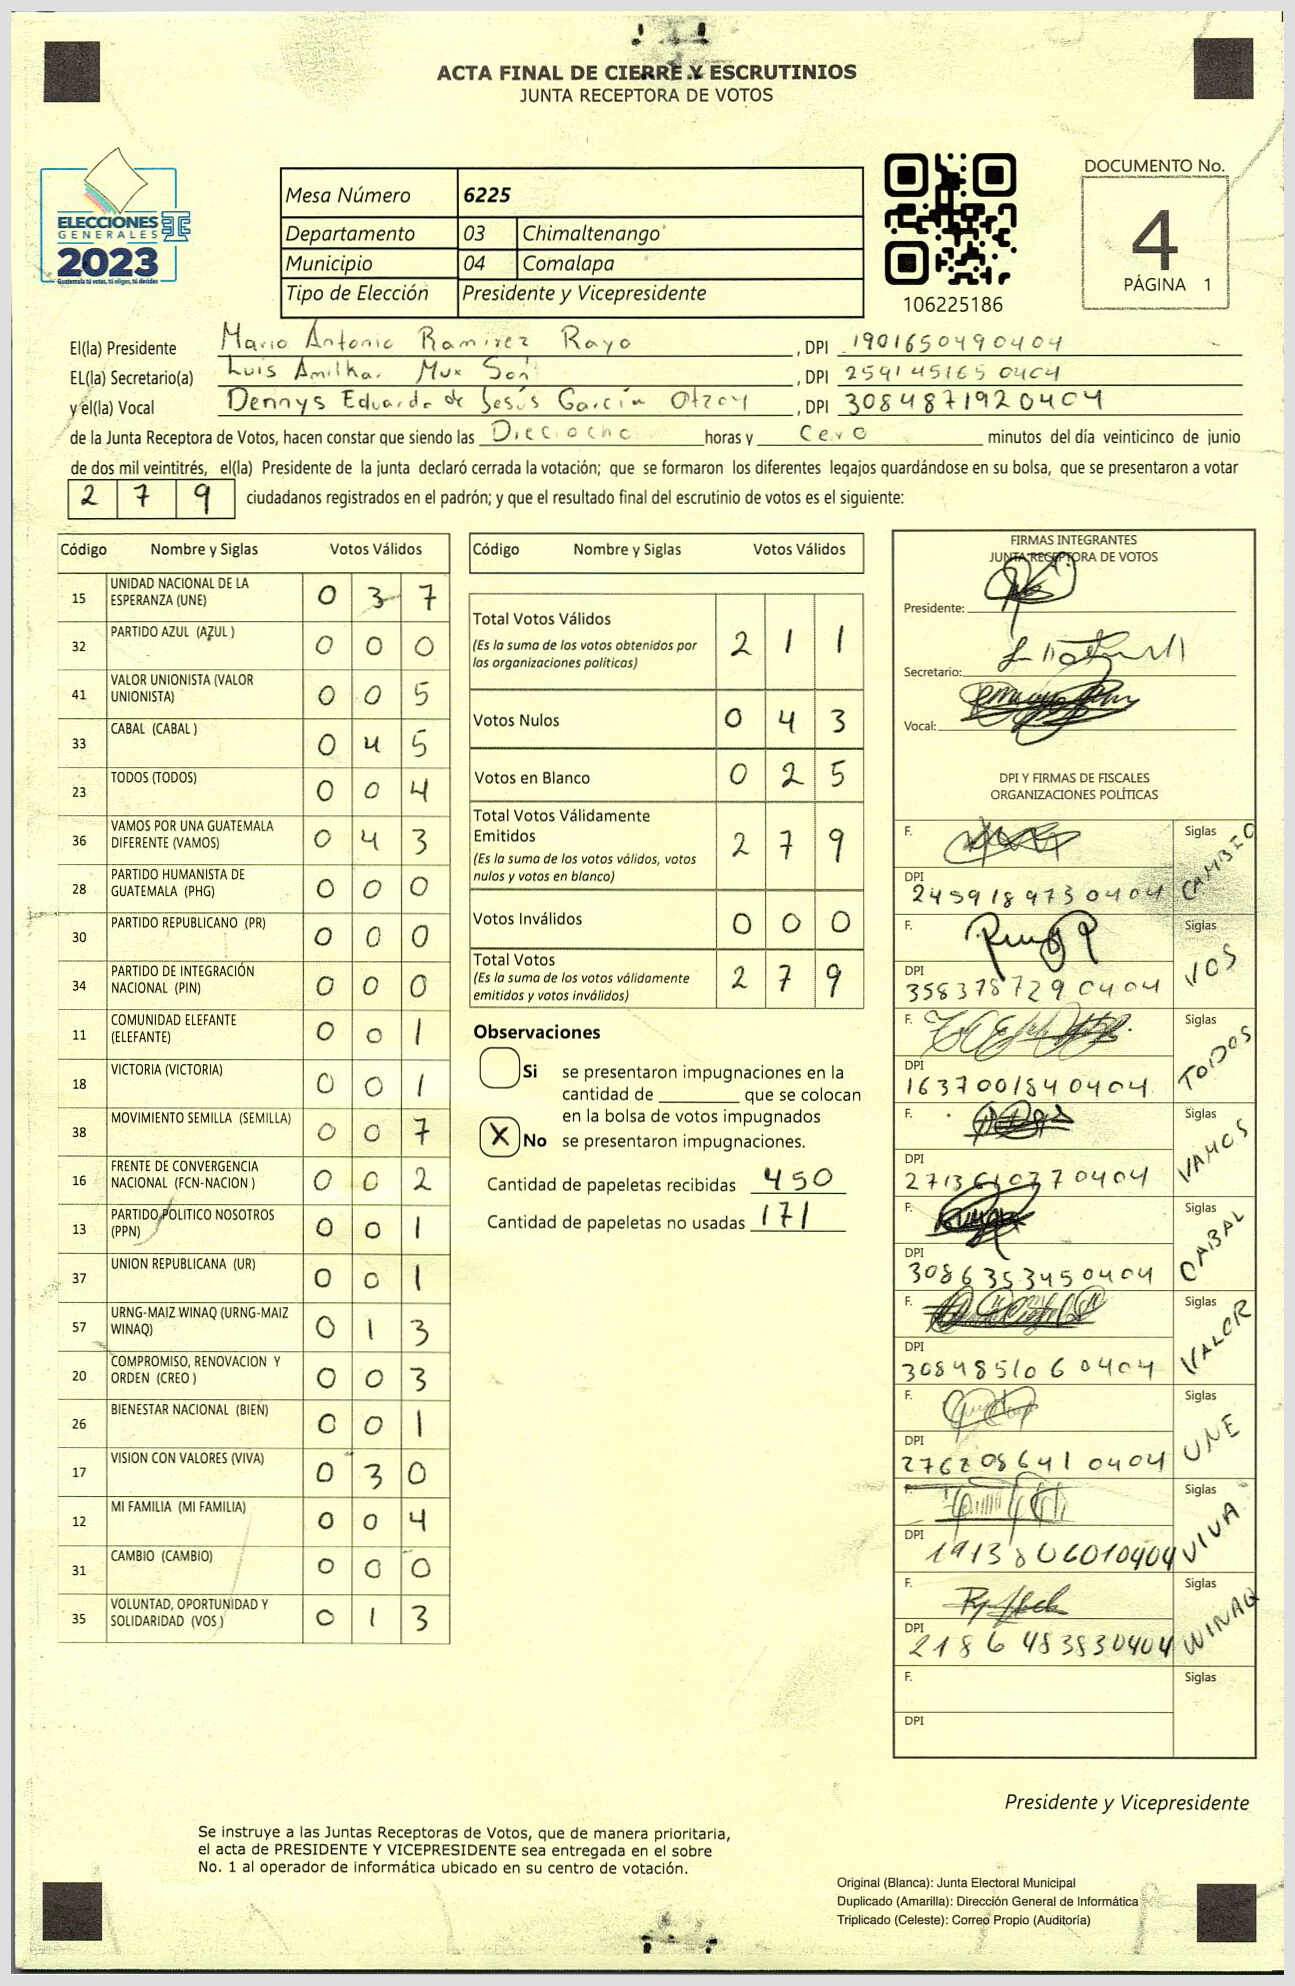 ACTA FINAL DE CIERRE Y ESCRUTINIOS
JUNTA RECEPTORA DE VOTOS
ELECCIONES
GENERALES
2023
Guatemala tú votas, tú eliges, tú decides
Mesa Número 6225
Departamento 03 Chimaltenango
Municipio 04 Comalapa
Tipo de Elección Presidente y Vicepresidente
106225186
DOCUMENTO No.
4
PÁGINA 1
El(la) Presidente Mario Antonio Ramirez Rayo , DPI 1901650490404
EL(la) Secretario(a) Luis Amilkar Mux Són , DPI 2591451650404
y el(la) Vocal Dennys Eduardo de Jesús García Otzoy , DPI 3084871920404
de la Junta Receptora de Votos, hacen constar que siendo las Dieciocho horas y Cero minutos del día veinticinco de junio
de dos mil veintitrés, el(la) Presidente de la junta declaró cerrada la votación; que se formaron los diferentes legajos quardándose en su bolsa, que se presentaron a votar
2 7 9 ciudadanos registrados en el padrón; y que el resultado final del escrutinio de votos es el siguiente:
Código Nombre y Siglas Votos Válidos
15 UNIDAD NACIONAL DE LA ESPERANZA (UNE) 0 3 7
32 PARTIDO AZUL (AZUL ) 0 0 0
41 VALOR UNIONISTA (VALOR UNIONISTA) 0 0 5
33 CABAL (CABAL ) 0 4 5
23 TODOS (TODOS) 0 0 4
36 VAMOS POR UNA GUATEMALA DIFERENTE (VAMOS) 0 4 3
28 PARTIDO HUMANISTA DE GUATEMALA (PHG) 0 0 0
30 PARTIDO REPUBLICANO (PR) 0 0 0
34 PARTIDO DE INTEGRACIÓN NACIONAL (PIN) 0 0 0
11 COMUNIDAD ELEFANTE (ELEFANTE) 0 0 1
18 VICTORIA (VICTORIA) 0 0 1
38 MOVIMIENTO SEMILLA (SEMILLA) 0 0 7
16 FRENTE DE CONVERGENCIA NACIONAL (FCN-NACION ) 0 0 2
13 PARTIDO POLITICO NOSOTROS (PPN) 0 0 1
37 UNION REPUBLICANA (UR) 0 0 1
57 URNG-MAIZ WINAQ (URNG-MAIZ WINAQ) 0 1 3
20 COMPROMISO, RENOVACION Y ORDEN (CREO ) 0 0 3
26 BIENESTAR NACIONAL (BIEN) 0 0 1
17 VISION CON VALORES (VIVA) 0 3 0
12 MI FAMILIA (MI FAMILIA) 0 0 4
31 CAMBIO (CAMBIO) 0 0 0
35 VOLUNTAD, OPORTUNIDAD Y SOLIDARIDAD (VOS ) 0 1 3
Código Nombre y Siglas Votos Válidos
Total Votos Válidos 2 1 1
(Es la suma de los votos obtenidos por
las organizaciones políticas)
Votos Nulos 0 4 3
Votos en Blanco 0 2 5
Total Votos Válidamente
Emitidos 2 7 9
(Es la suma de los votos válidos, votos
nulos y votos en blanco)
Votos Inválidos 0 0 0
Total Votos 2 7 9
(Es la suma de los votos válidamente
emitidos y votos inválidos)
Observaciones
Si se presentaron impugnaciones en la
cantidad de ________ que se colocan
en la bolsa de votos impugnados
X No se presentaron impugnaciones.
Cantidad de papeletas recibidas 450
Cantidad de papeletas no usadas 171
FIRMAS INTEGRANTES
JUNTA RECEPTORA DE VOTOS
Presidente:
Secretario:
Vocal:
DPI Y FIRMAS DE FISCALES
ORGANIZACIONES POLÍTICAS
F. Siglas CAMBIO
DPI 2459189730404
F. Siglas VOS
DPI 3583787290404
F. Siglas TODOS
DPI 1637001840404
F. Siglas VAMOS
DPI 2713610770404
F. Siglas CABAL
DPI 3086353450404
F. Siglas VALOR
DPI 3084851060404
F. Siglas UNE
DPI 2762086410404
F. Siglas VIVA
DPI 1913806010404
F. Siglas WINAQ
DPI 2186483830404
F. Siglas
DPI
Presidente y Vicepresidente
Se instruye a las Juntas Receptoras de Votos, que de manera prioritaria,
el acta de PRESIDENTE Y VICEPRESIDENTE sea entregada en el sobre
No. 1 al operador de informática ubicado en su centro de votación.
Original (Blanca): Junta Electoral Municipal
Duplicado (Amarilla): Dirección General de Informática
Triplicado (Celeste): Correo Propio (Auditoría)